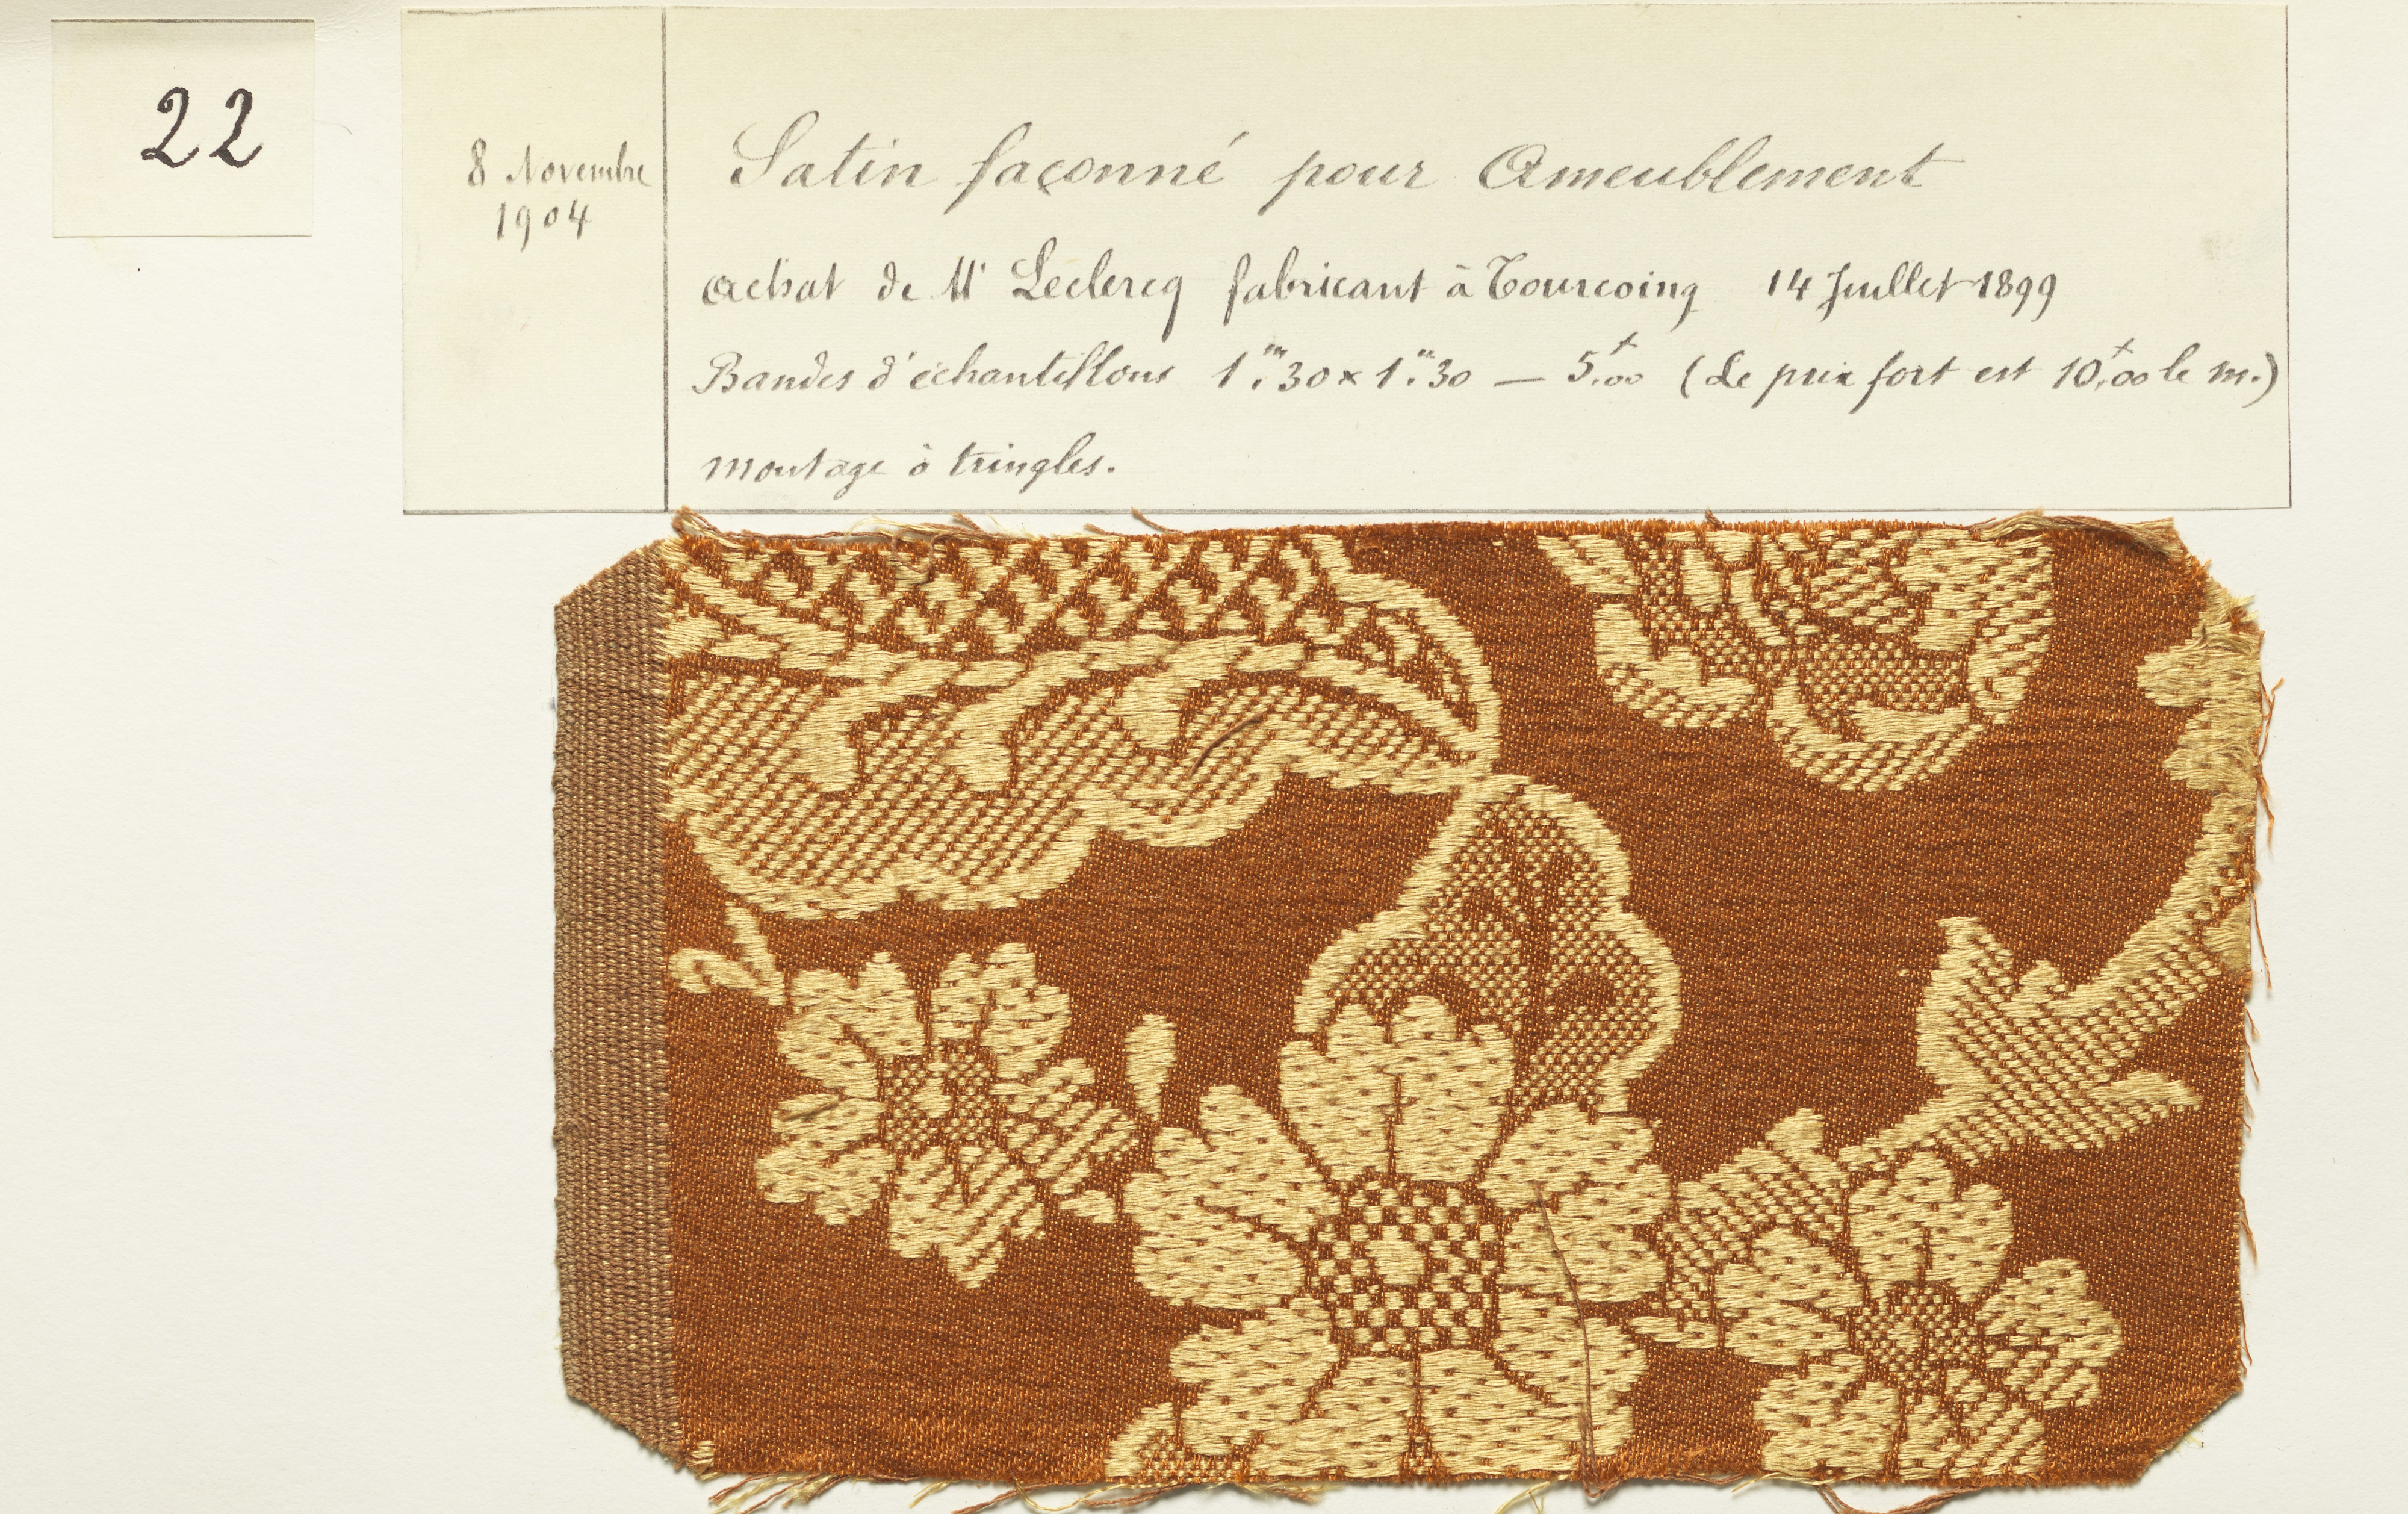 22
8 Novembre
1904
Satin façonné pour Ameublement
Achat de Mr Leclercq fabricant à Tourcoing 14 Juillet 1899
Bandes d'échantillons 1m,30 x 1m,30 — 5f,00 (Le prix fort est 10f,00 le m.)
montage à tringles.